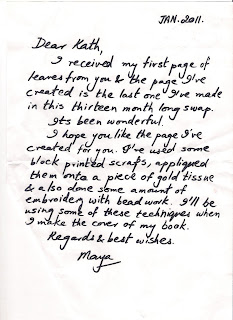 JAN. 2011.
Dear Kath,
I received my first page of
leaves from you & the page I've
created is the last one I've made
in this thirteen month long swap.
Its been wonderful.
I hope you like the page I've
created for you. I've used some
block printed scraps, appliqued
them onto a piece of gold tissue
& also done some amount of
embroidery with bead work. I'll be
using some of these techniques when
I make the cover of my book.
Regards & best wishes.
Maya